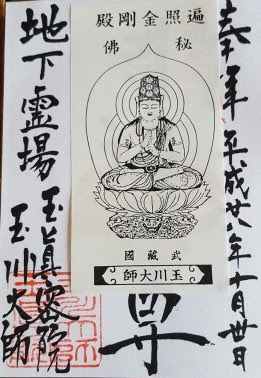 奉拝 平成廿八年十月廿日
遍照金剛殿
秘佛
武藏國
玉川大師
地下霊場
玉眞密院
玉川大師